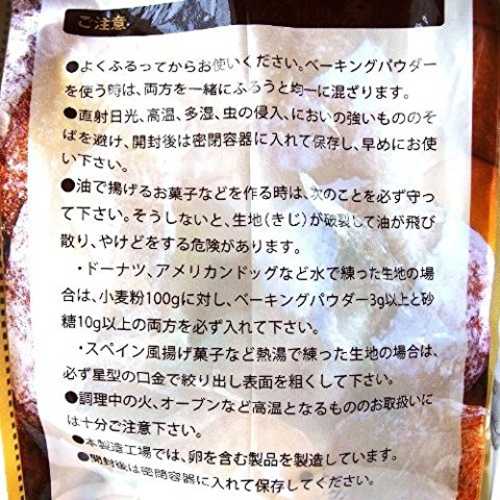 ご注意
●よくふるってからお使いください。ベーキングパウダー
を使う時は、両方を一緒にふるうと均一に混ざります。
●直射日光、高温、多湿、虫の侵入、においの強いもののそ
ばを避け、開封後は密閉容器に入れて保存し、早めにお使
い下さい。
●油で揚げるお菓子などを作る時は、次のことを必ず守っ
て下さい。そうしないと、生地(きじ)が破裂して油が飛び
散り、やけどをする危険があります。
・ドーナツ、アメリカンドッグなど水で練った生地の場
合は、小麦粉100gに対し、ベーキングパウダー3g以上と砂
糖10g以上の両方を必ず入れて下さい。
・スペイン風揚げ菓子など熱湯で練った生地の場合は、
必ず星型の口金で絞り出し表面を粗くして下さい。
●調理中の火、オーブンなど高温となるもののお取扱いに
は十分ご注意下さい。
●本製造工場では、卵を含む製品を製造しています。
●開封後は密閉容器に入れて保存してください。